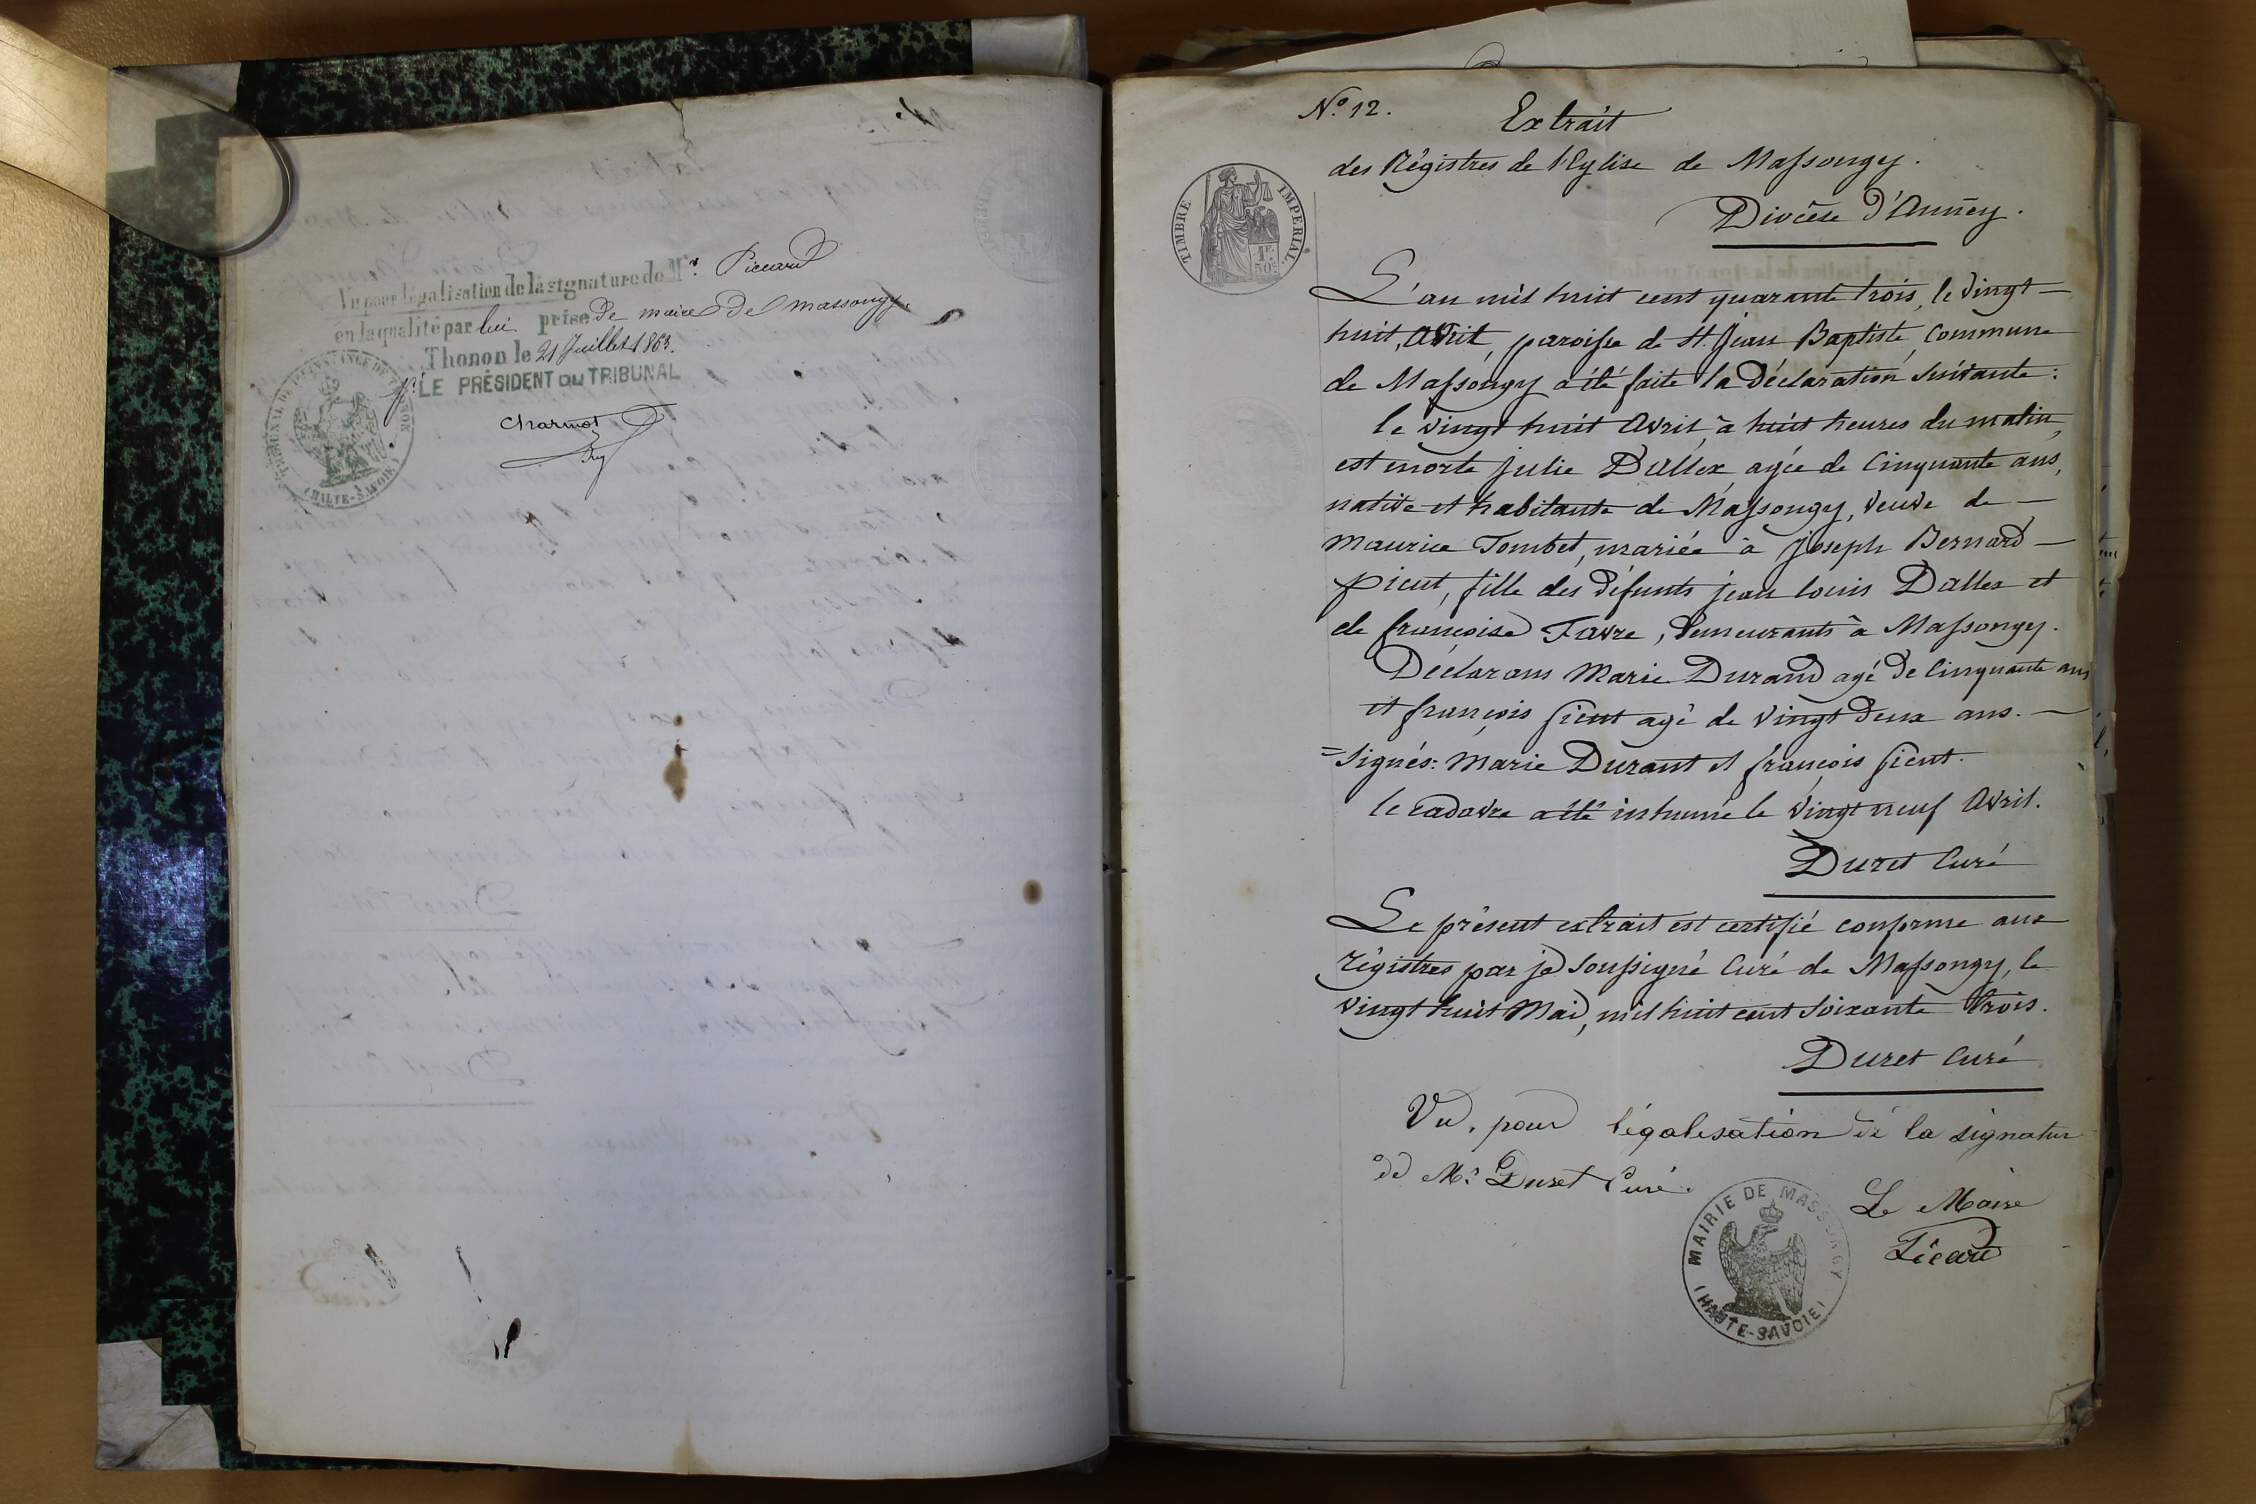 Vu pour légalisation de la signature de Mr. Piccard
en la qualité par lui prise de maire de massongy.
Thonon le 21 Juillet 1863.
pr. LE PRÉSIDENT DU TRIBUNAL
Charmot
TRIBUNAL DE 1ère INSTANCE DE THONON
(HAUTE-SAVOIE)
No. 12. Extrait
des Régistres de l'Eglise de Massongy.
Diocèse d'Annecy.
TIMBRE IMPERIAL
1F. 50c.
L'an mil huit cent quarante trois, le vingt-
huit, avril, paroisse de St. Jean Baptiste, commune
de Massongy a été faite la Déclaration suivante:
le vingt huit avril, à huit heures du matin,
est morte julie Dallex agée de cinquante ans,
native et habitante de Massongy, veuve de —
Maurice Tombet, mariée à joseph Bernard —
pient, fille des défunts jean louis Dallex et
de françoise Favre, demeurants à Massongy.
Déclarans Marie Durand agé de cinquante ans
et françois fient agé de vingt deux ans. —
= signés: Marie Durant et françois fient.
le cadavre a été inhumé le vingt neuf avril.
Duret Curé
Le présent extrait est certifié conforme aux
régistres par je soussigné Curé de Massongy, le
vingt huit Mai, mil huit cent soixante trois.
Duret Curé
Vu, pour légalisation de la signatur
de Mr. Duret Curé.
Le Maire
Picard
MAIRIE DE MASSONGY
(HAUTE-SAVOIE)